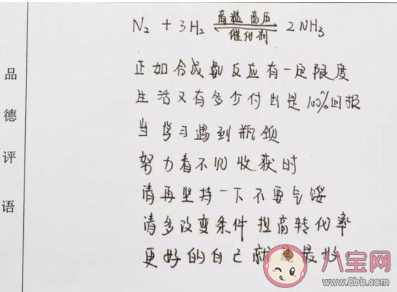 N₂ + 3H₂ 高温 高压 催化剂 2NH₃
品德评语
正如合成氨反应有一定限度
生活又有多少付出是100%回报
当学习遇到瓶颈
努力看不见收获时
请再坚持一下不要气馁
请多改变条件 提高转化率
更好的自己就 最妙
八宝网
www.babaofan.com